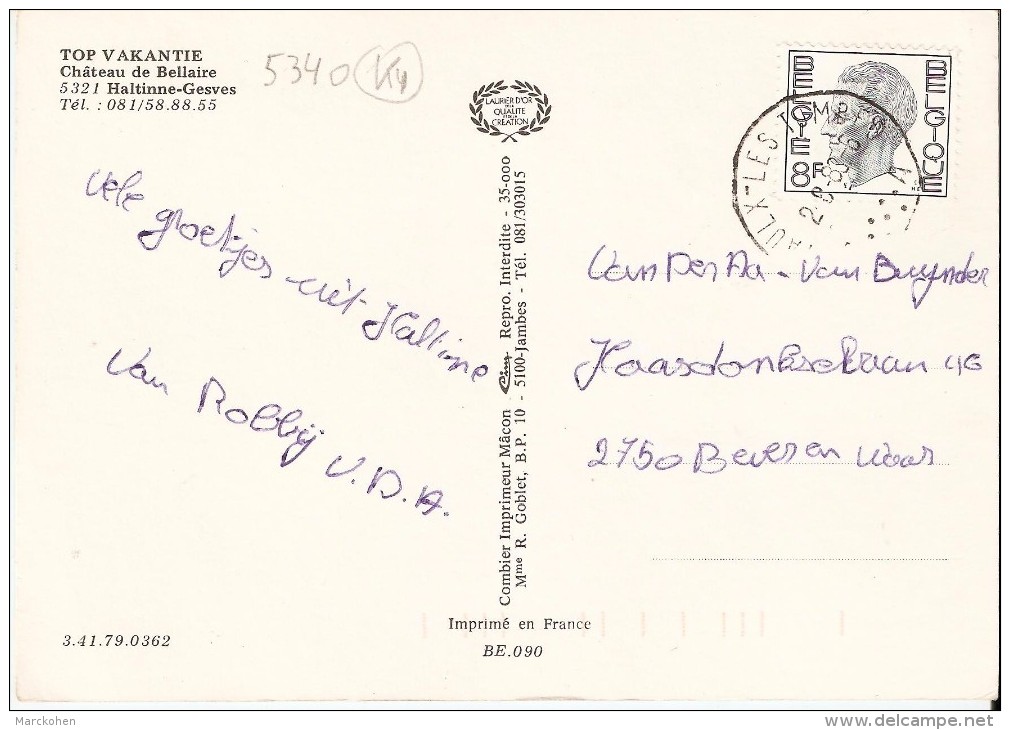 TOP VAKANTIE
Château de Bellaire
5321 Haltinne-Gesves
Tél. : 081/58.88.55
5340 K4
LAURIER D'OR
QUALITE
CRÉATION
BELGIE 8F BELGIQUE
AULX-LES TOMBES
Vele groetjes uit Haltinne
Van Robbij V.D.A.
Combier Imprimeur Mâcon Cim Repro. Interdite - 35-000
Mme R. Goblet, B.P. 10 - 5100-Jambes - Tél. 081/303015
Van Der Aa - Van Buynder
Haasdonksebaan 46
2750 Beveren Waas
Imprimé en France
3.41.79.0362
BE.090
Marckohen
delcampe.net